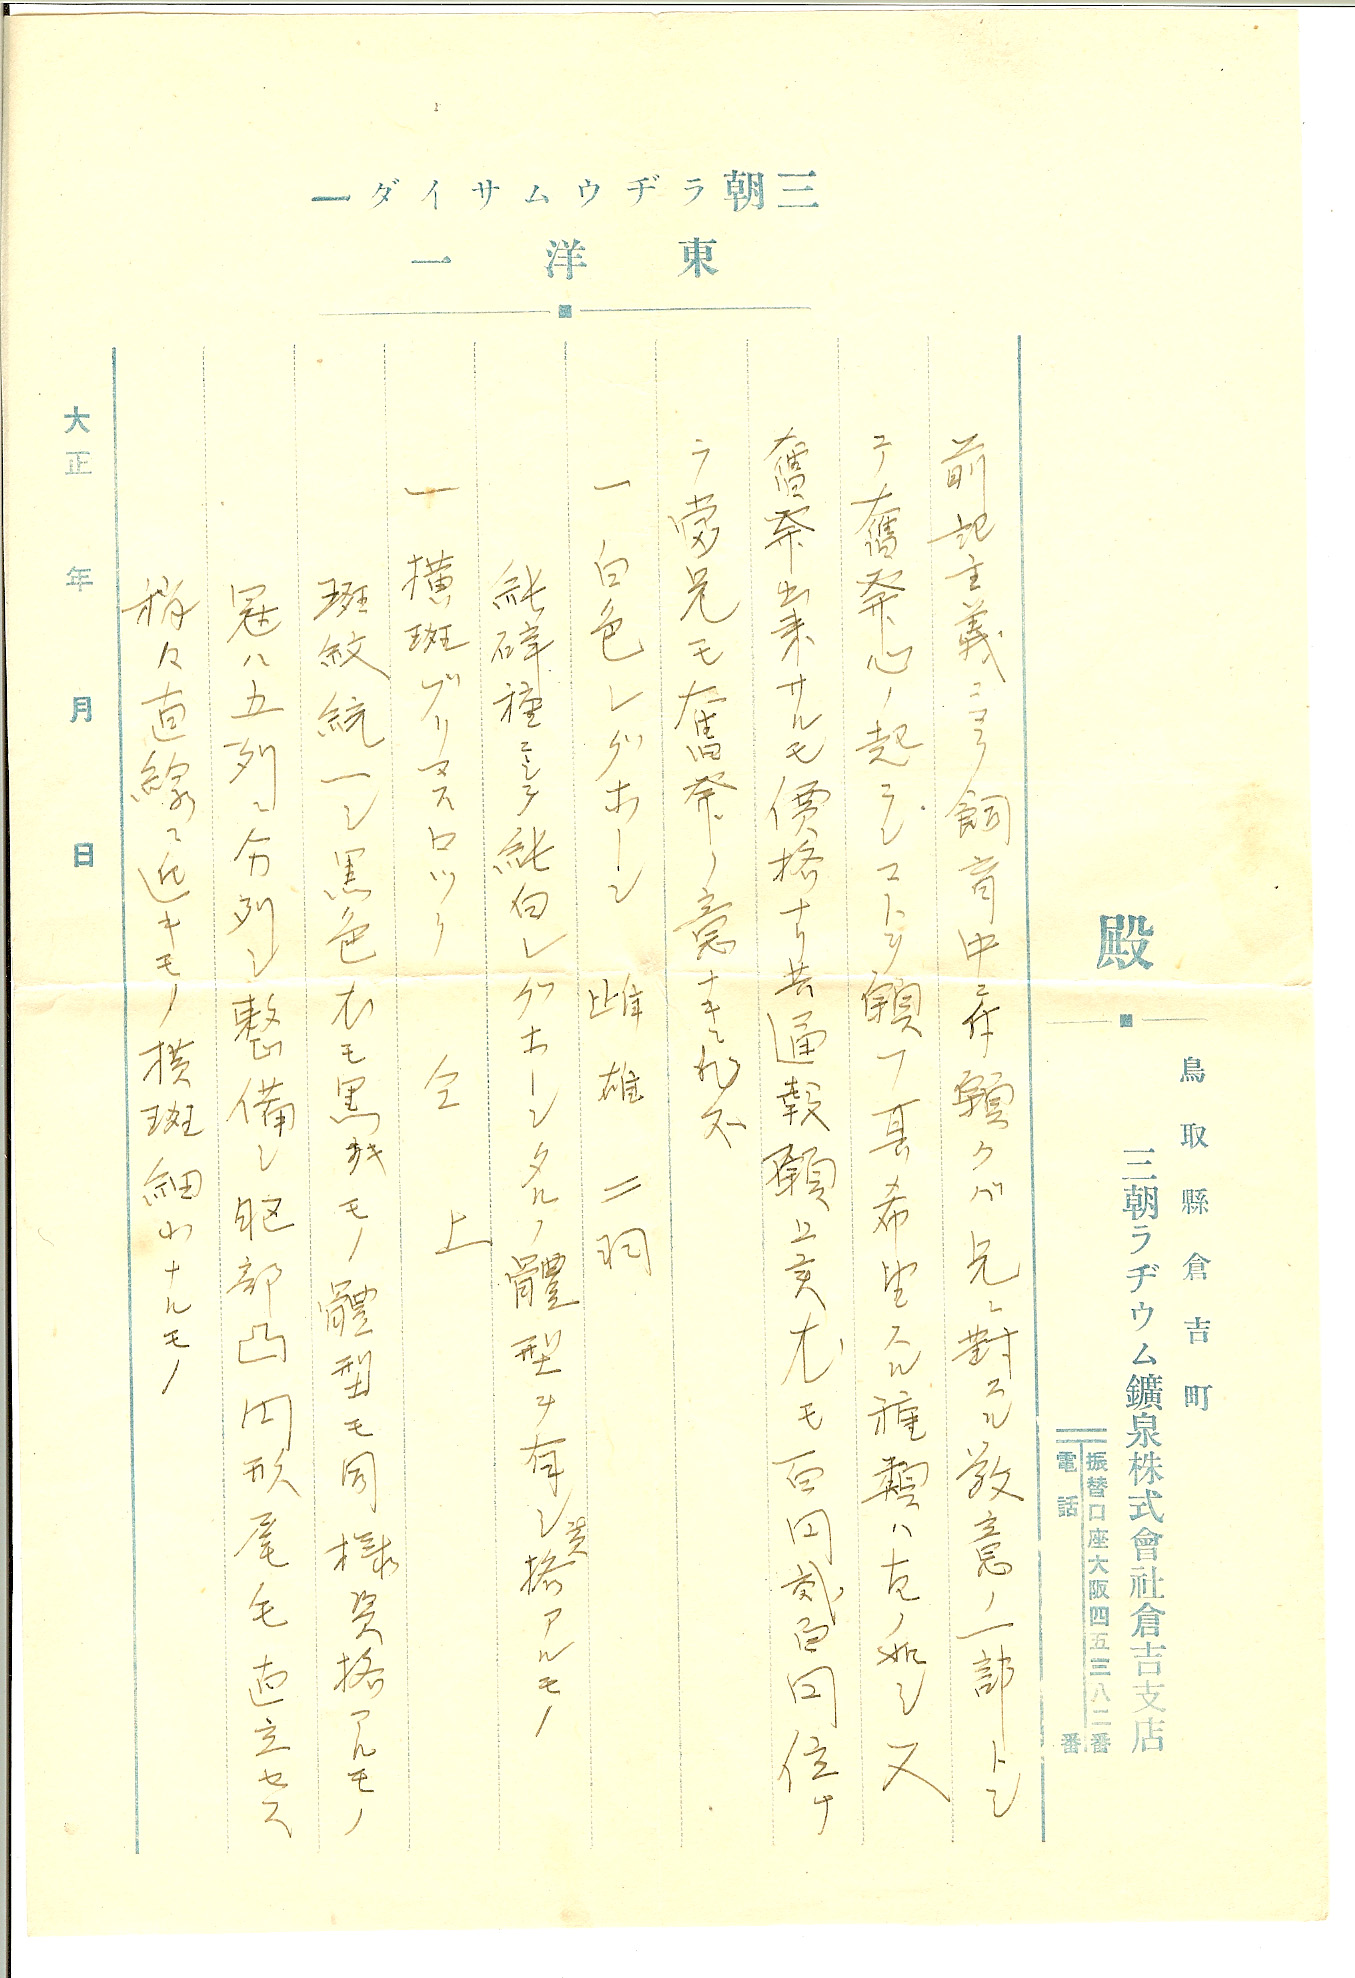 三朝ラヂウムサイダー
東洋一
鳥取縣倉吉町
三朝ラヂウム鑛泉株式會社倉吉支店
振替口座大阪四五三八二番
電話 番
殿
前記主義ニヨリ飼育中ニ付願クバ兄ニ對スル敬意ノ一部トシ
テ奮発心ノ起ランコトヲ願フ其希望スル種類ハ左ノ如シ又
奮発出来サルモ価格ナリ共通報願上 尤モ百円貳百円位ナ
ラ當兄モ奮発ノ意ナキニ非ス
一 白色レグホーン 雌雄 二羽
純粋種ニシテ純白レグホーンタルノ體型ヲ有シ資格アルモノ
一 横斑プリマスロック 仝上
斑紋統一シ黒色 尤モ黒キモノ體型モ同様資格アルモノ
冠ハ五列ニ分列シ整備シ 部凸円形尾毛直立セス
稍々直線ニ近キモノ横斑細カナルモノ
大正 年 月 日